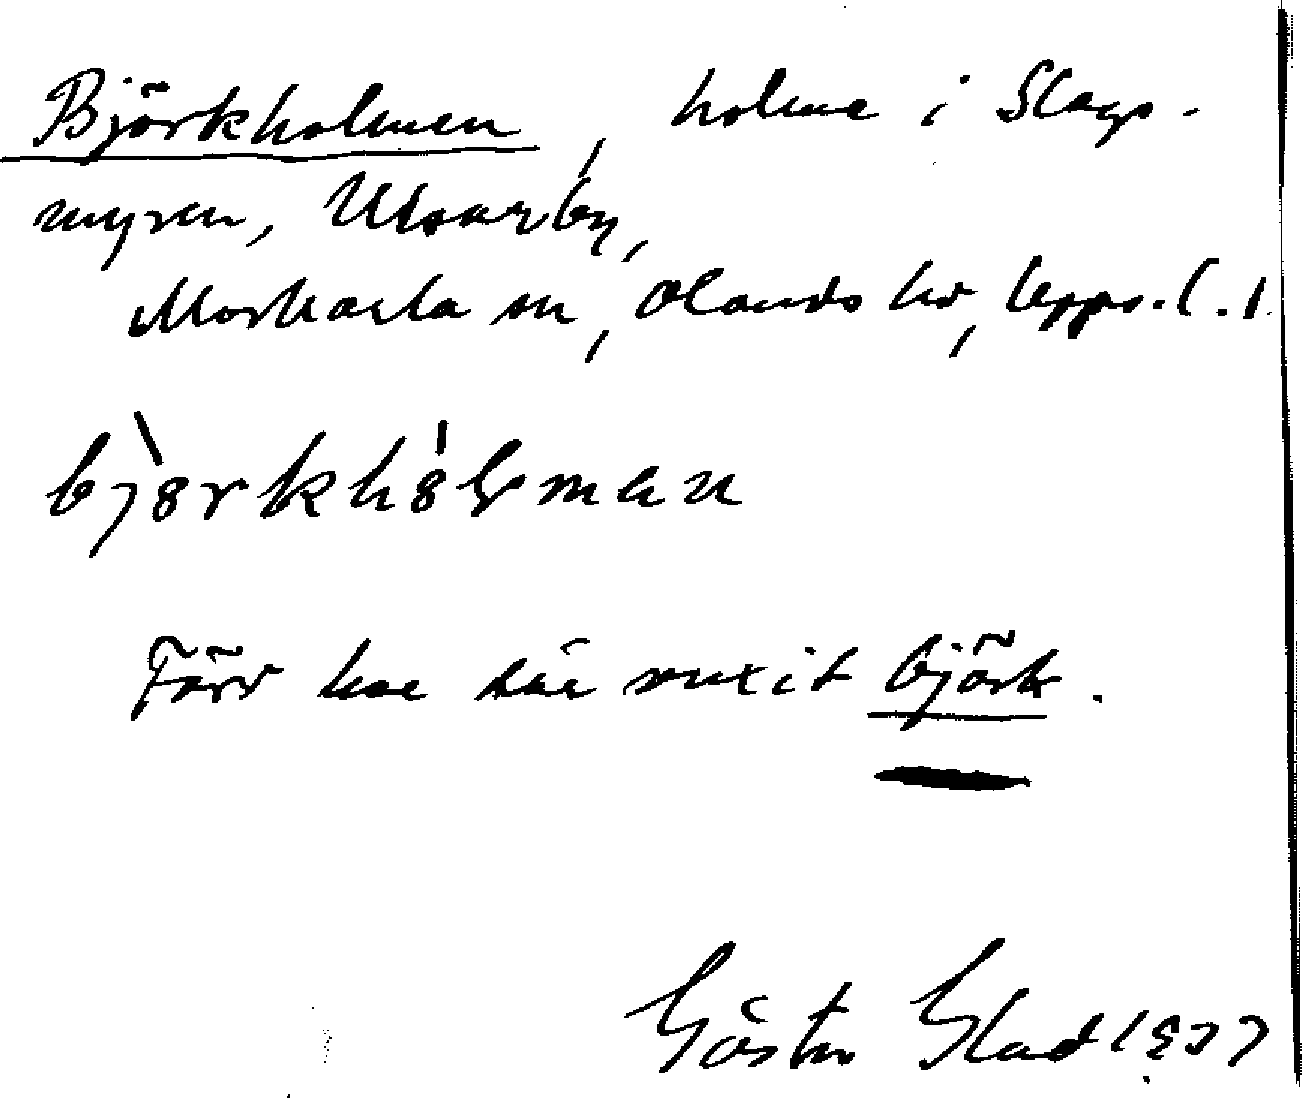 Björkholmen, holme i Slags-
myren, Ulvarby,
Morkarla sn, Olands hd, Upps. l.
bj8rkh8lman
Förr har här vuxit björk.
Gösta Glad 1937